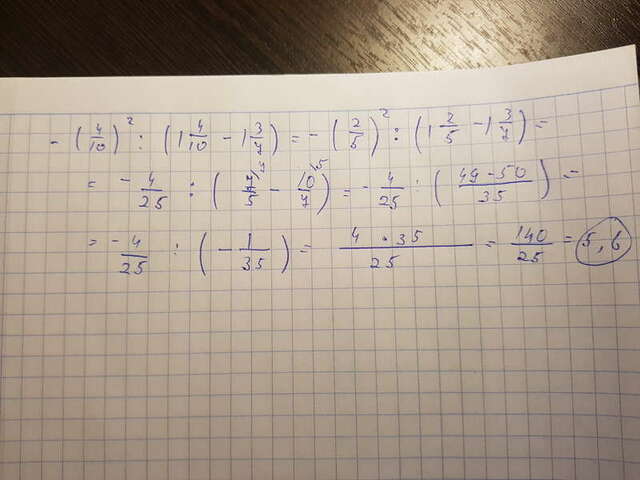 - (4/10)² : (1 4/10 - 1 3/7) = - (2/5)² : (1 2/5 - 1 3/7) =
= - 4/25 : (7/5 \7 - 10/7 \5) = - 4/25 : (49-50/35) =
= - 4/25 : (- 1/35) = 4 · 35/25 = 140/25 = 5,6